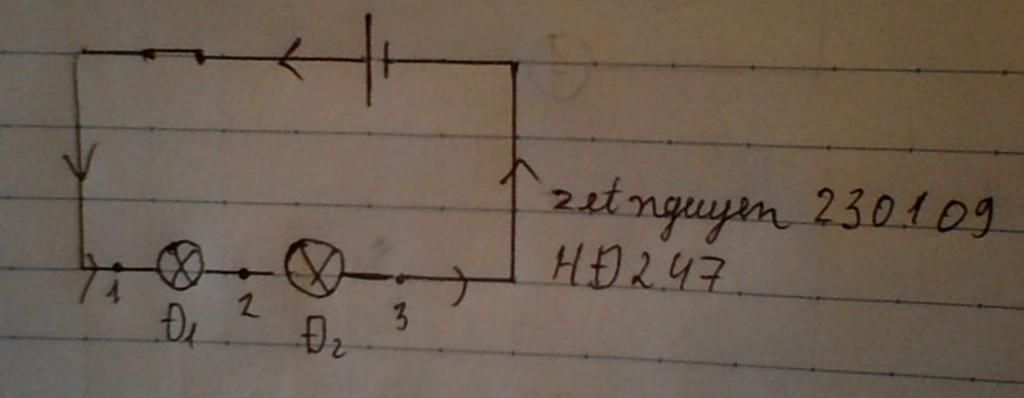 zetnguyen 230109
HĐ247
1 2 3
Đ1 Đ2